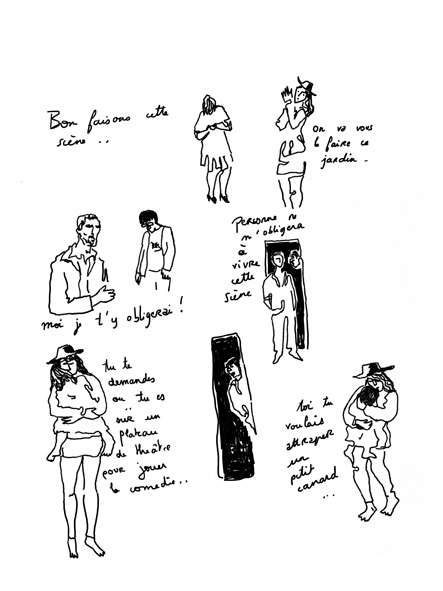 Bon faisons cette
scène..
on va vous
le faire ce
jardin -
Personne ne
m'obligera
à
vivre
cette
scène
moi je t'y obligerai !
tu te
demandes
ou tu es
sur un
plateau
de théâtre
pour jouer
la comedie...
toi tu
voulais
attraper
un
petit
canard
...